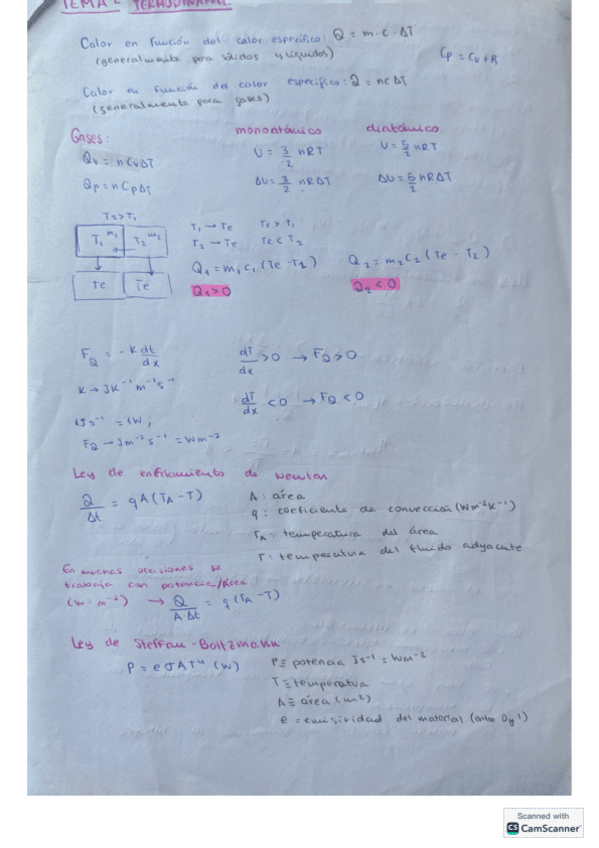 TEMA 2 TERMODINÁMICA
Calor en función del calor específico: Q = m · c · ΔT
(generalmente para sólidos y líquidos)
Cp = Cv + R
Calor en función del calor específico: Q = nCΔT
(generalmente para gases)
Gases: monoatómico diatómico
Qv = nCvΔT U = 3/2 nRT U = 5/2 nRT
Qp = nCpΔT ΔU = 3/2 nRΔT ΔU = 5/2 nRΔT
T2 > T1
T1 m1 T2 m2
Te Te
T1 → Te Te > T1
T2 → Te Te < T2
Q1 = m1c1 (Te - T2) Q2 = m2c2 (Te - T2)
Q1 > 0 Q2 < 0
FQ = -K dt/dx dT/dx > 0 → FQ > 0
K → JK⁻¹ m⁻¹ s⁻¹ dT/dx < 0 → FQ < 0
1Js⁻¹ = 1W ;
FQ → Jm⁻² s⁻¹ = Wm⁻²
Ley de enfriamiento de Newton
Q/Δt = qA(TA - T)
A: área
q: coeficiente de convección (Wm⁻²K⁻¹)
TA: temperatura del área
T: temperatura del fluido adyacente
En muchas ocasiones se
trabaja con potencia/Área
(w · m⁻²) → Q/A·Δt = q(TA - T)
Ley de Steffan-Boltzmann
P = eσAT⁴ (W)
P ≡ potencia Js⁻¹ = Wm⁻²
T ≡ temperatura
A ≡ área (m²)
e = emisividad del material (entre 0 y 1)
Scanned with
CS CamScanner